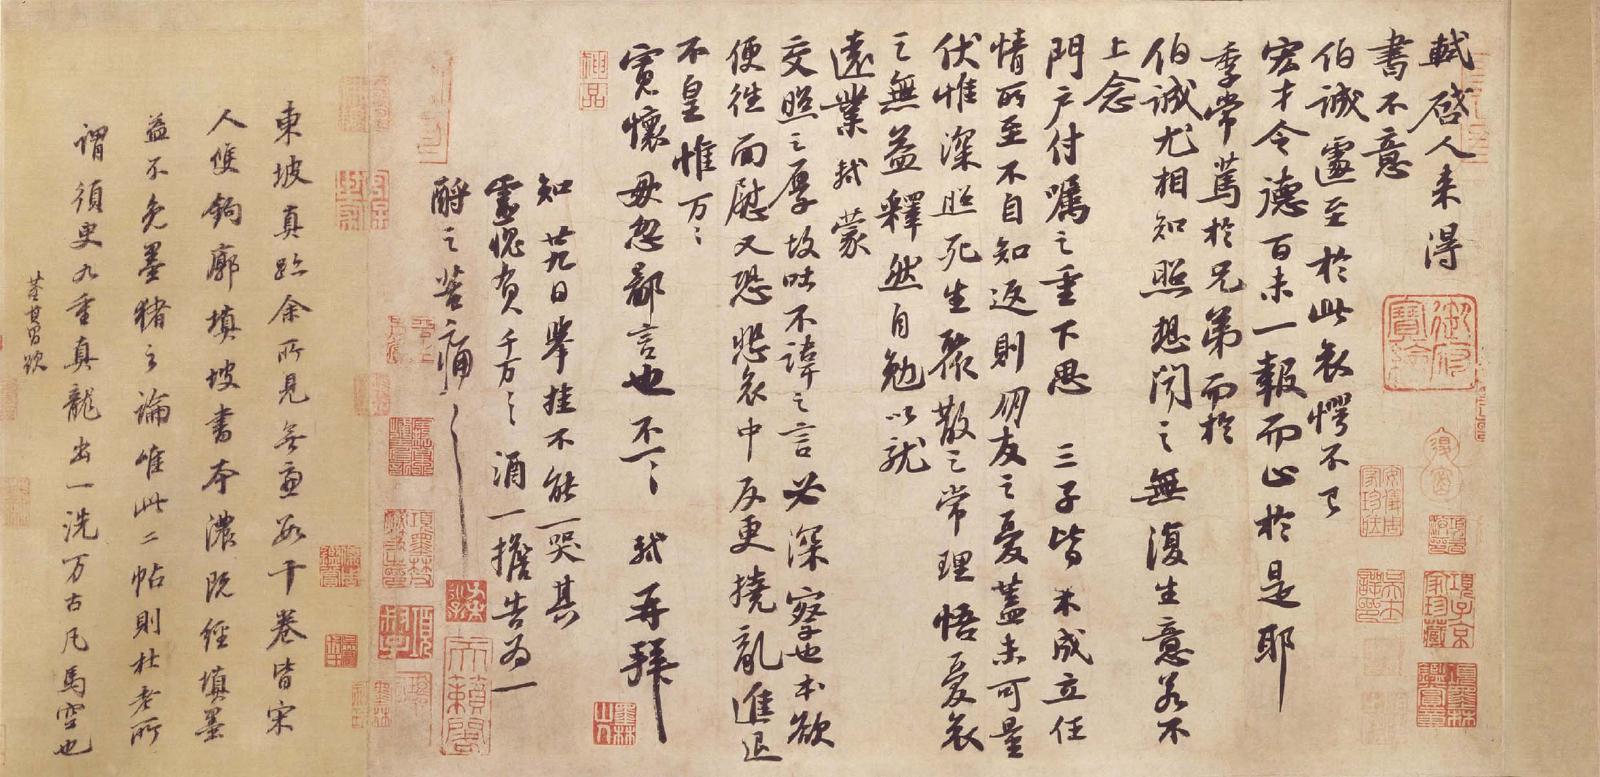 軾啓人來得
書不意
伯誠遽至於此哀愕不已
宏才令德百未一報而止於是耶
季常篤於兄弟而於
伯誠尤相知照想聞之無復生意若不
上念
門户付囑之重下思三子皆未成立任
情所至不自知返則朋友之憂蓋未可量
伏惟深照死生聚散之常理悟憂哀
之無益釋然自勉以就
遠業軾蒙
交照之厚故吐不諱之言必深察也本欲
便往面慰又恐悲哀中反更撓亂進退
不皇惟万々
寬懷毋忽鄙言也不一々軾再拜
知廿九日舉挂不能一哭其
靈愧負千万々酒一擔告爲一
酹之苦痛々
東坡真跡余所見無慮數十卷皆宋
人雙鉤廓填坡書本濃既經填墨
益不免墨猪之論唯此二帖則杜老所
謂須臾九重真龍出一洗万古凡馬空也
董其昌跋
神品
墨林山人
御府寶繪
項子京家珍藏
項墨林鑑賞章
安儀周家珍藏